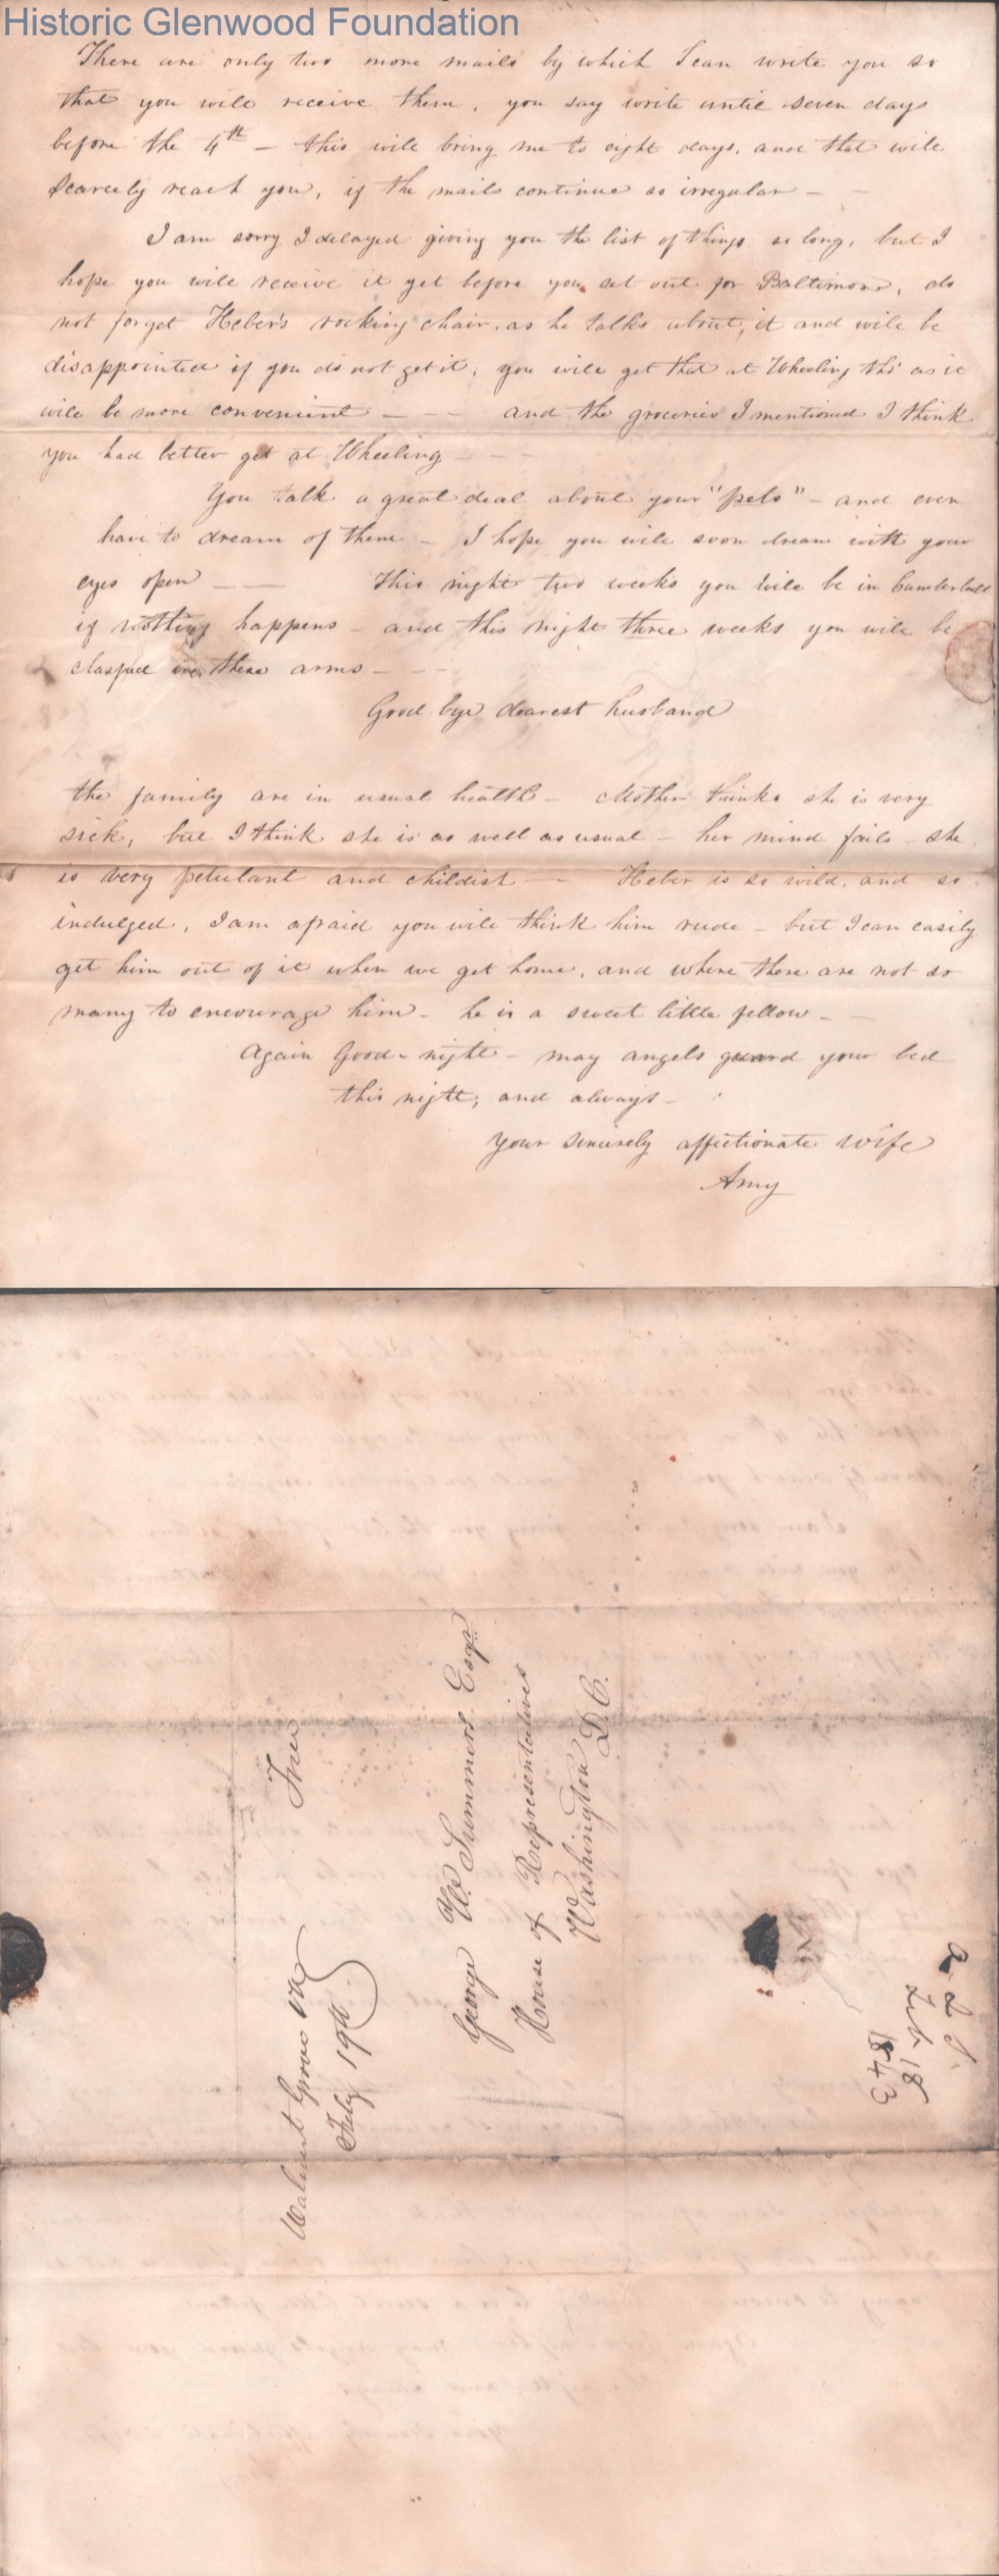 Historic Glenwood Foundation
There are only two more mails by which I can write you so
that you will receive them, you say write until seven days
before the 4th — this will bring me to eight days, and that will
scarcely reach you, if the mails continue so irregular —
I am sorry I delayed giving you the list of things so long, but I
hope you will receive it yet before you set out for Baltimore, do
not forget Heber's rocking chair, as he talks about it and will be
disappointed if you do not get it, you will get that at Wheeling tho' as it
will be more convenient — — — and the groceries I mentioned I think
you had better get at Wheeling — — —
You talk a great deal about your "pets" — and even
have to dream of them — I hope you will soon dream with your
eyes open — — This night two weeks you will be in Cumberland
if nothing happens — and this night three weeks you will be
clasped in these arms — — —
Good bye dearest husband
the family are in usual health — Mother thinks she is very
sick, but I think she is as well as usual — her mind fails — she
is very petulant and childish — — Heber is so wild, and so
indulged, I am afraid you will think him rude — but I can easily
get him out of it when we get home, and where there are not so
many to encourage him — he is a sweet little fellow — —
Again Good-night — may angels guard your bed
this night, and always —
Your sincerely affectionate wife
Amy
Walnut Grove Va
Feby 19th
Free
George W. Summers Esqr.
House of Representatives
Washington D.C.
Feb 18
1843